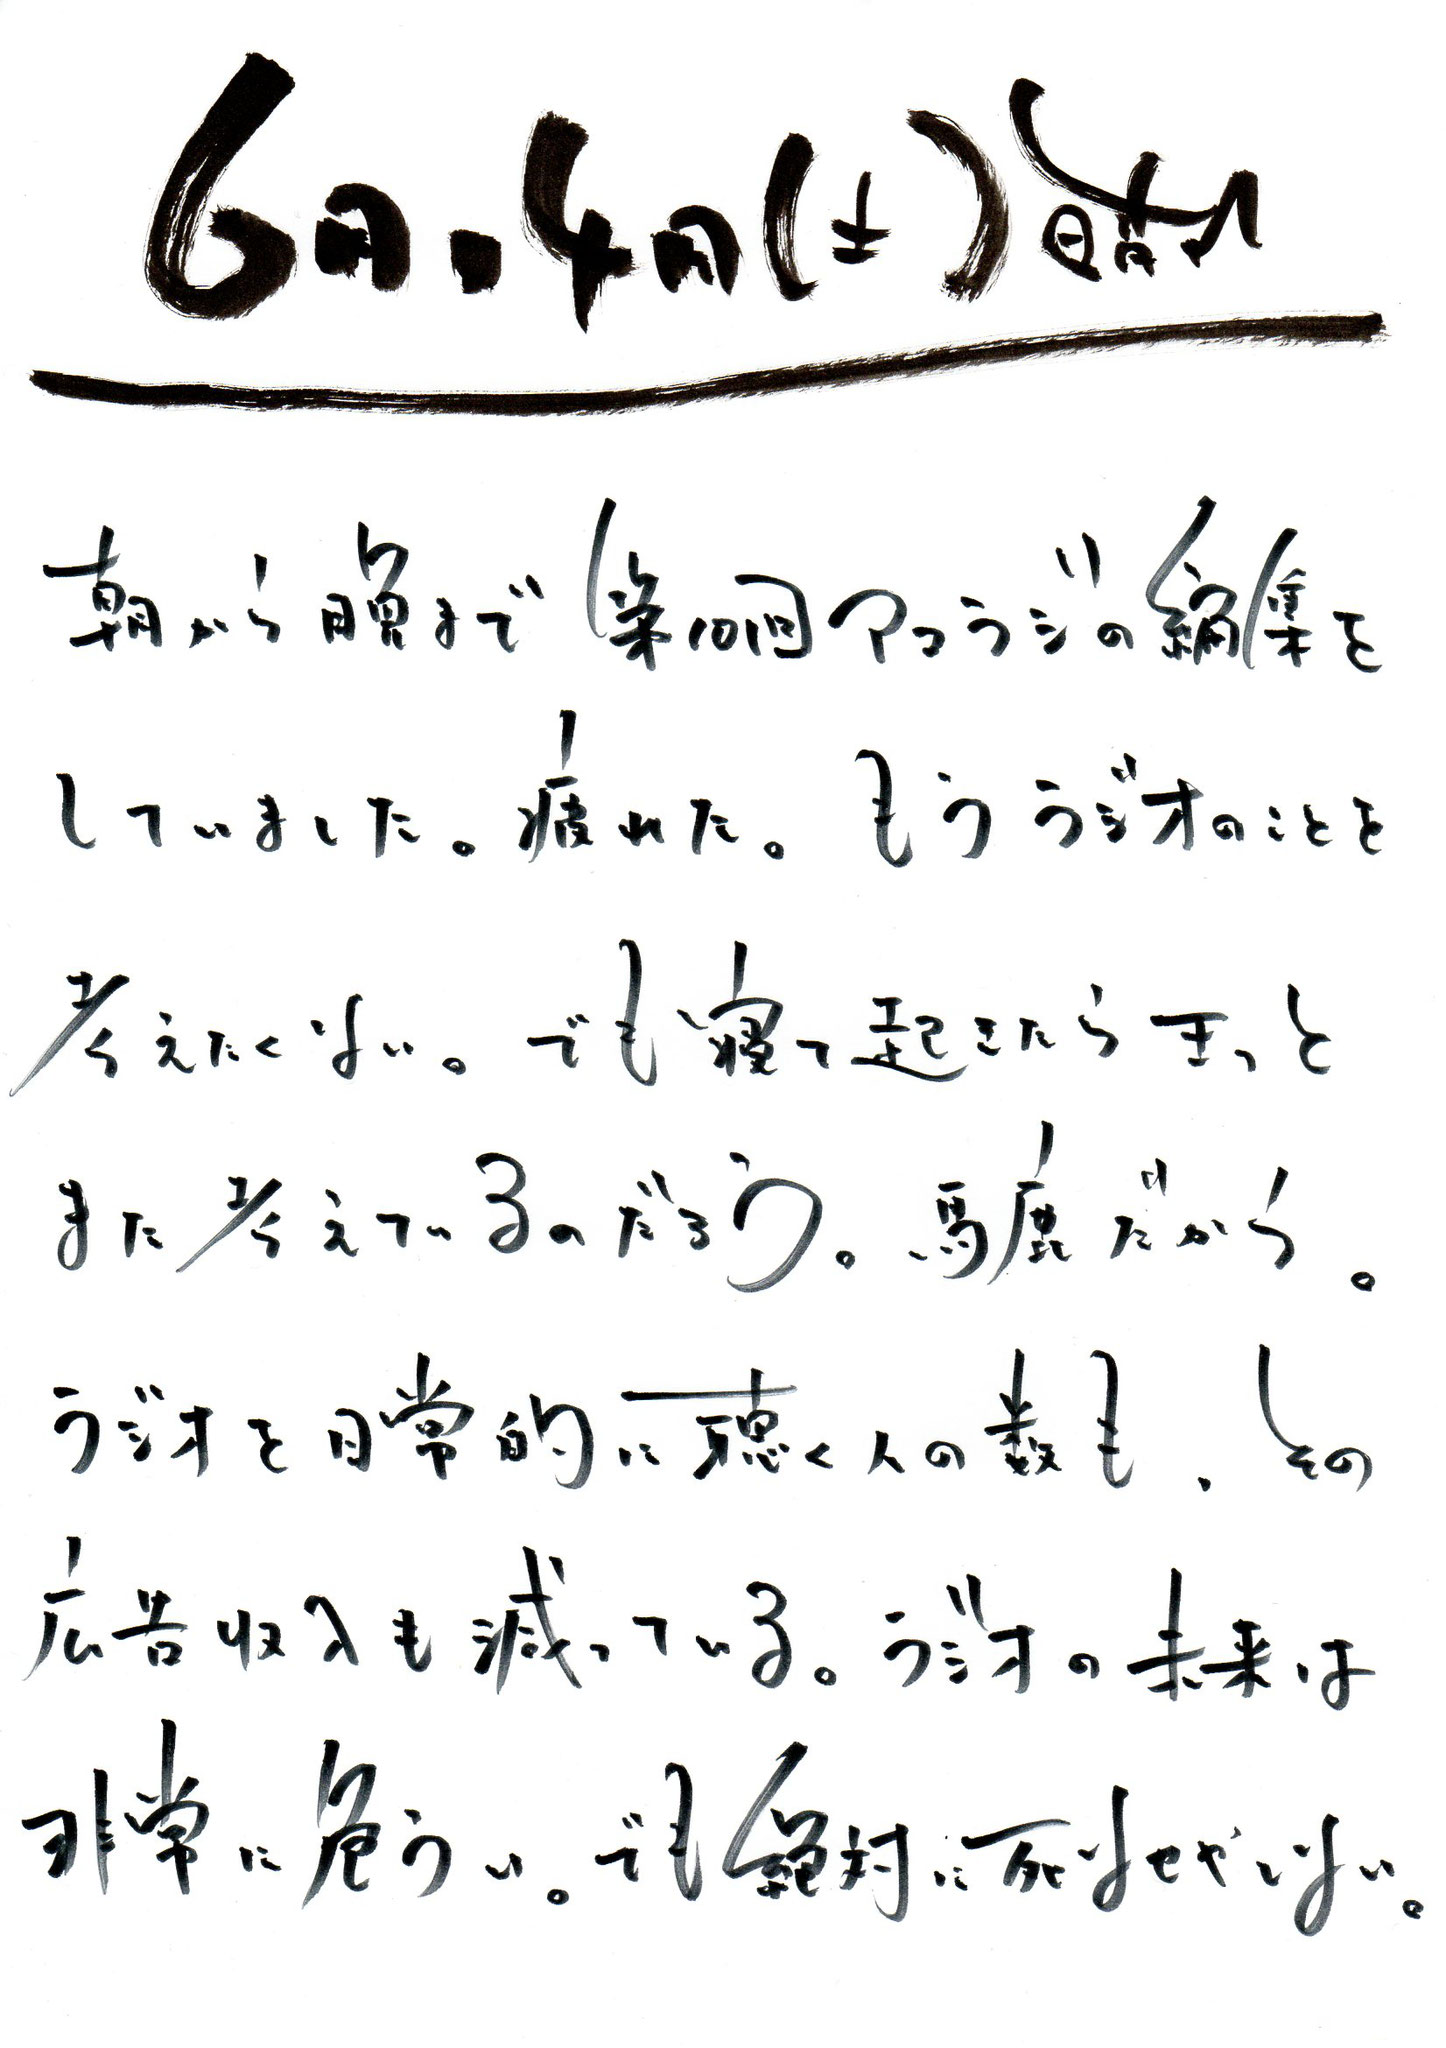 6月.4日(土)晴れ
朝から晩まで第10回アコラジの編集を
していました。疲れた。もうラジオのことを
考えたくない。でも寝て起きたらきっと
また考えているのだろう。馬鹿だから。
ラジオを日常的に聴く人の数も、その
広告収入も減っている。ラジオの未来は
非常に危うい。でも絶対に死なせやしない。